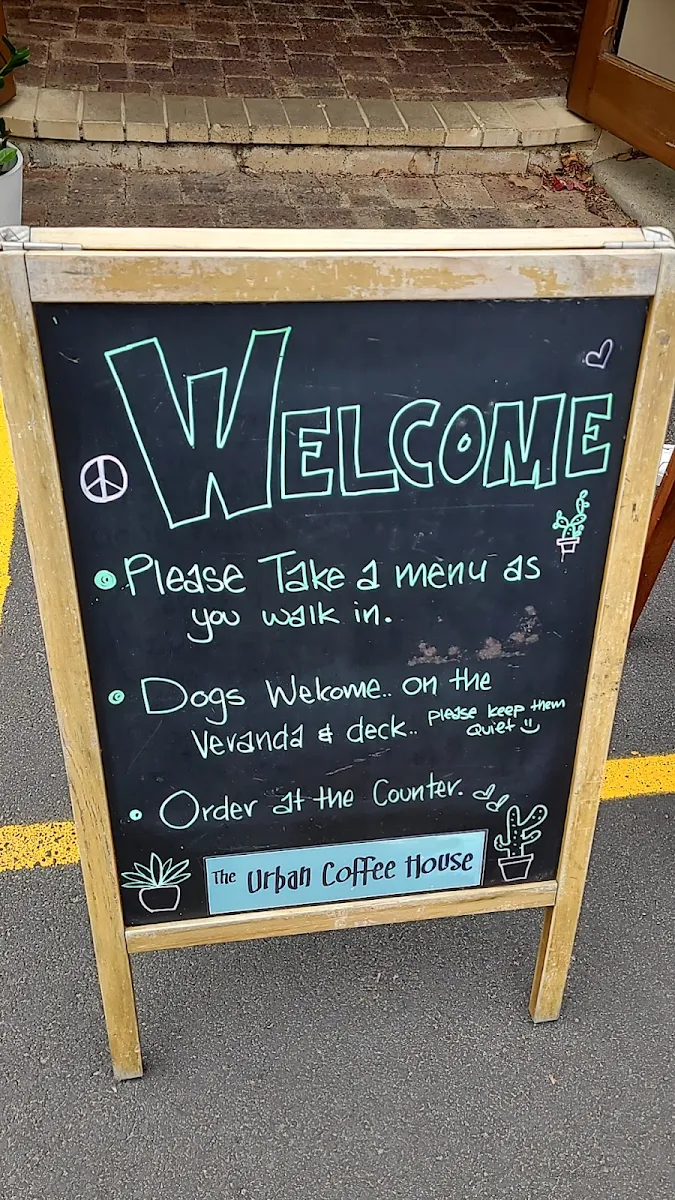 WELCOME
Please Take a menu as
you walk in.
Dogs Welcome.. on the
Veranda & deck.. please keep them
Quiet
Order at the Counter.
The Urban Coffee House